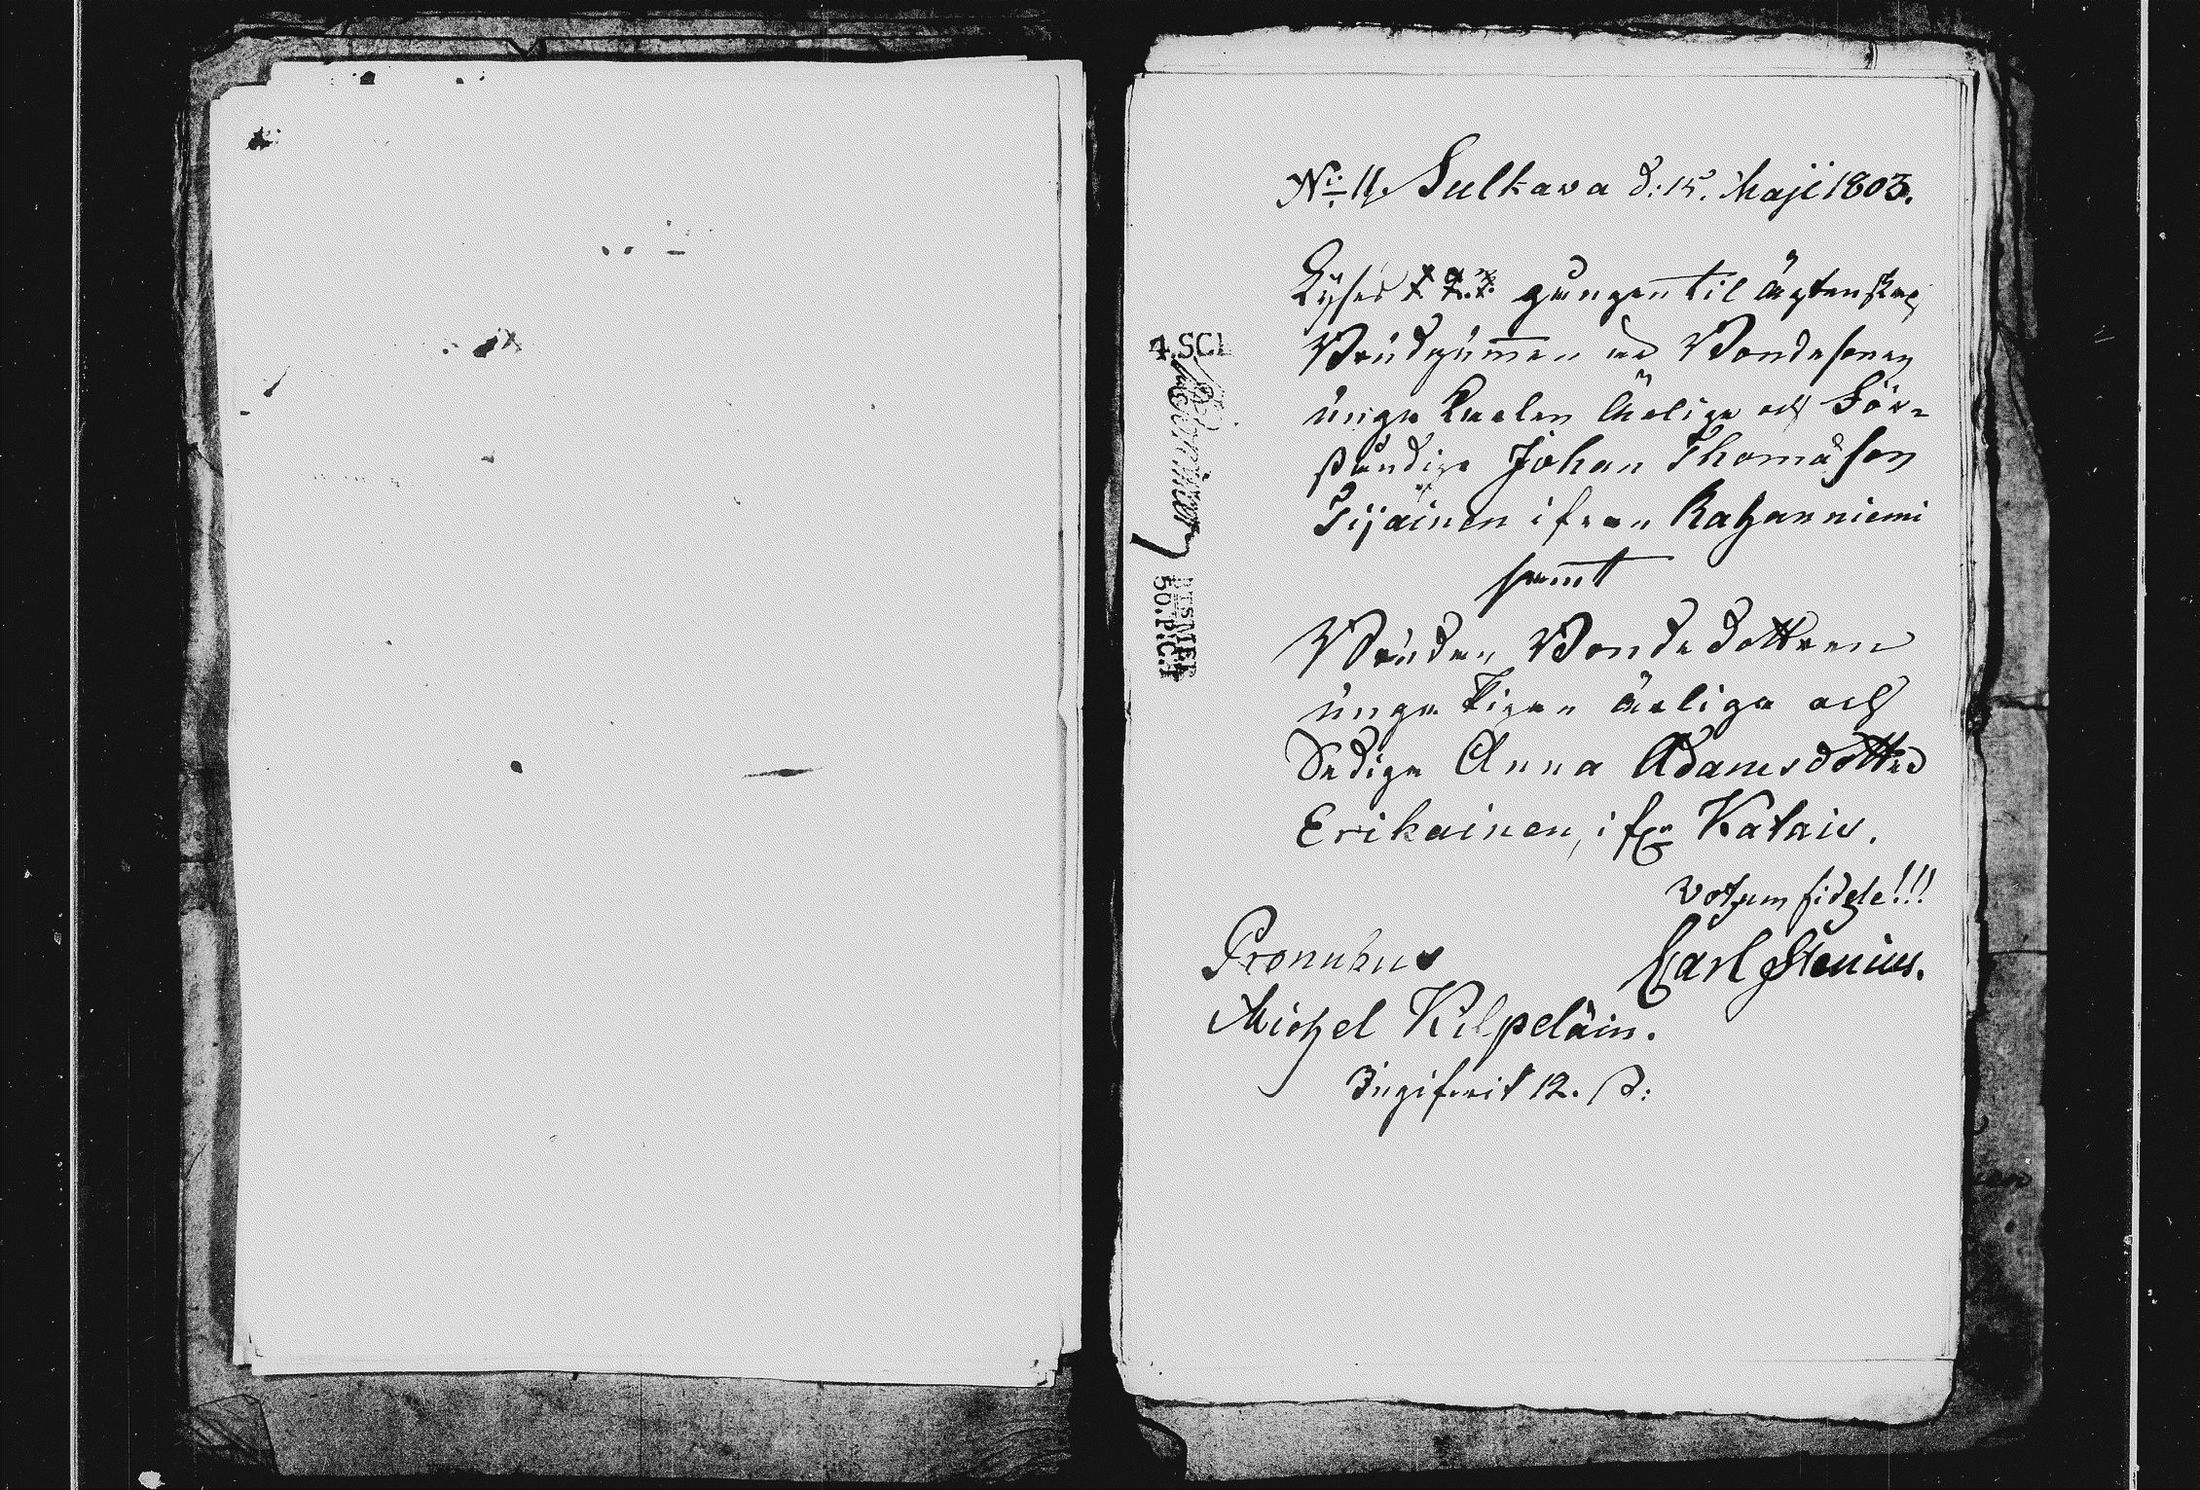 No: 11. Sulkava d: 15. Maji 1803.
Lyses 1. 2. 3. gången til ägtenskap
Brudgummen Bondesonen
unge Karlen ärlige och För-
ståndige Johan Thomasson
Tijainen ifrån Kahanniemi
samt
Bruden Bondedottren
unga Pigan ärliga och
Sediga Anna Adamsdotter
Erikainen, ifrn Kalais.
votum fidele!!!
Pronubus Carl Stenius.
Michel Kilpeläin.
12. S:
4.SCI
50.P.C.T